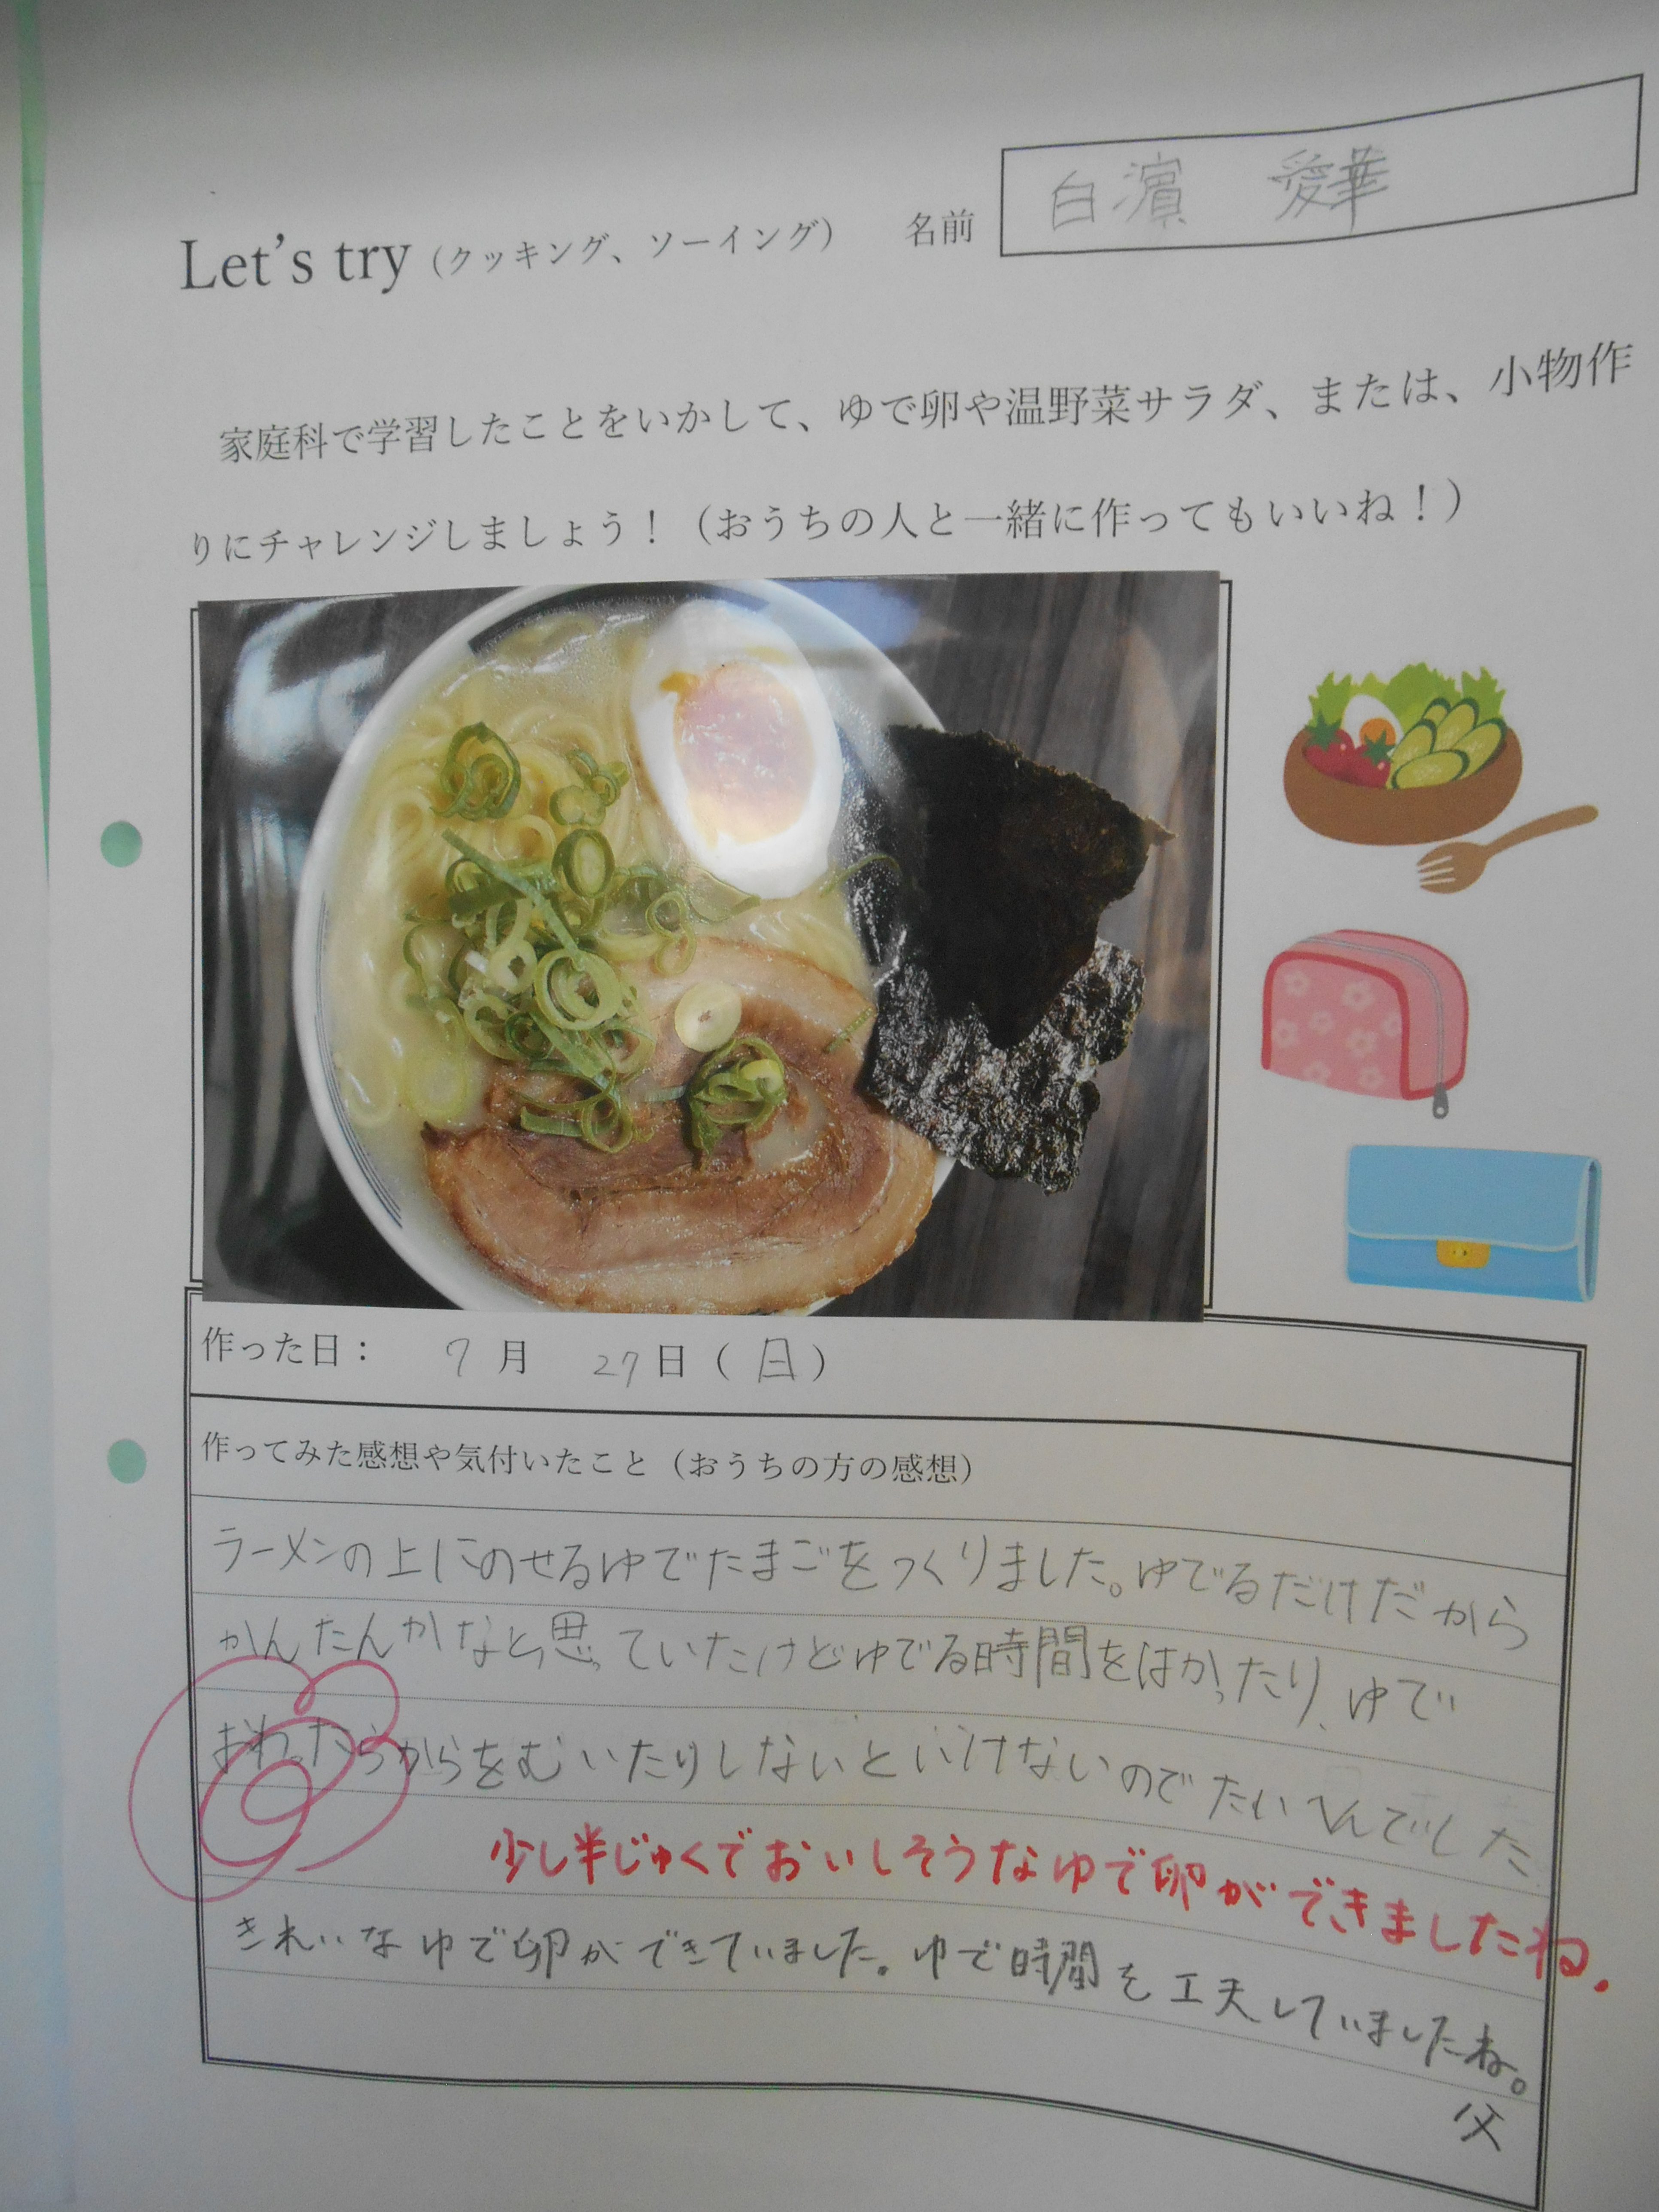 白濱 愛華
Let's try (クッキング、ソーイング) 名前
家庭科で学習したことをいかして、ゆで卵や温野菜サラダ、または、小物作
りにチャレンジしましょう！（おうちの人と一緒に作ってもいいね！）
作った日： 7月 27日（日）
作ってみた感想や気付いたこと（おうちの方の感想）
ラーメンの上にのせるゆでたまごをつくりました。ゆでるだけだから
かんたんかなと思っていたけどゆでる時間をはかったり、ゆで
おわったらからをむいたりしないといけないのでたいへんでした
少し半じゅくでおいしそうなゆで卵ができましたね.
きれいなゆで卵ができていました。ゆで時間を工夫していましたね。
父